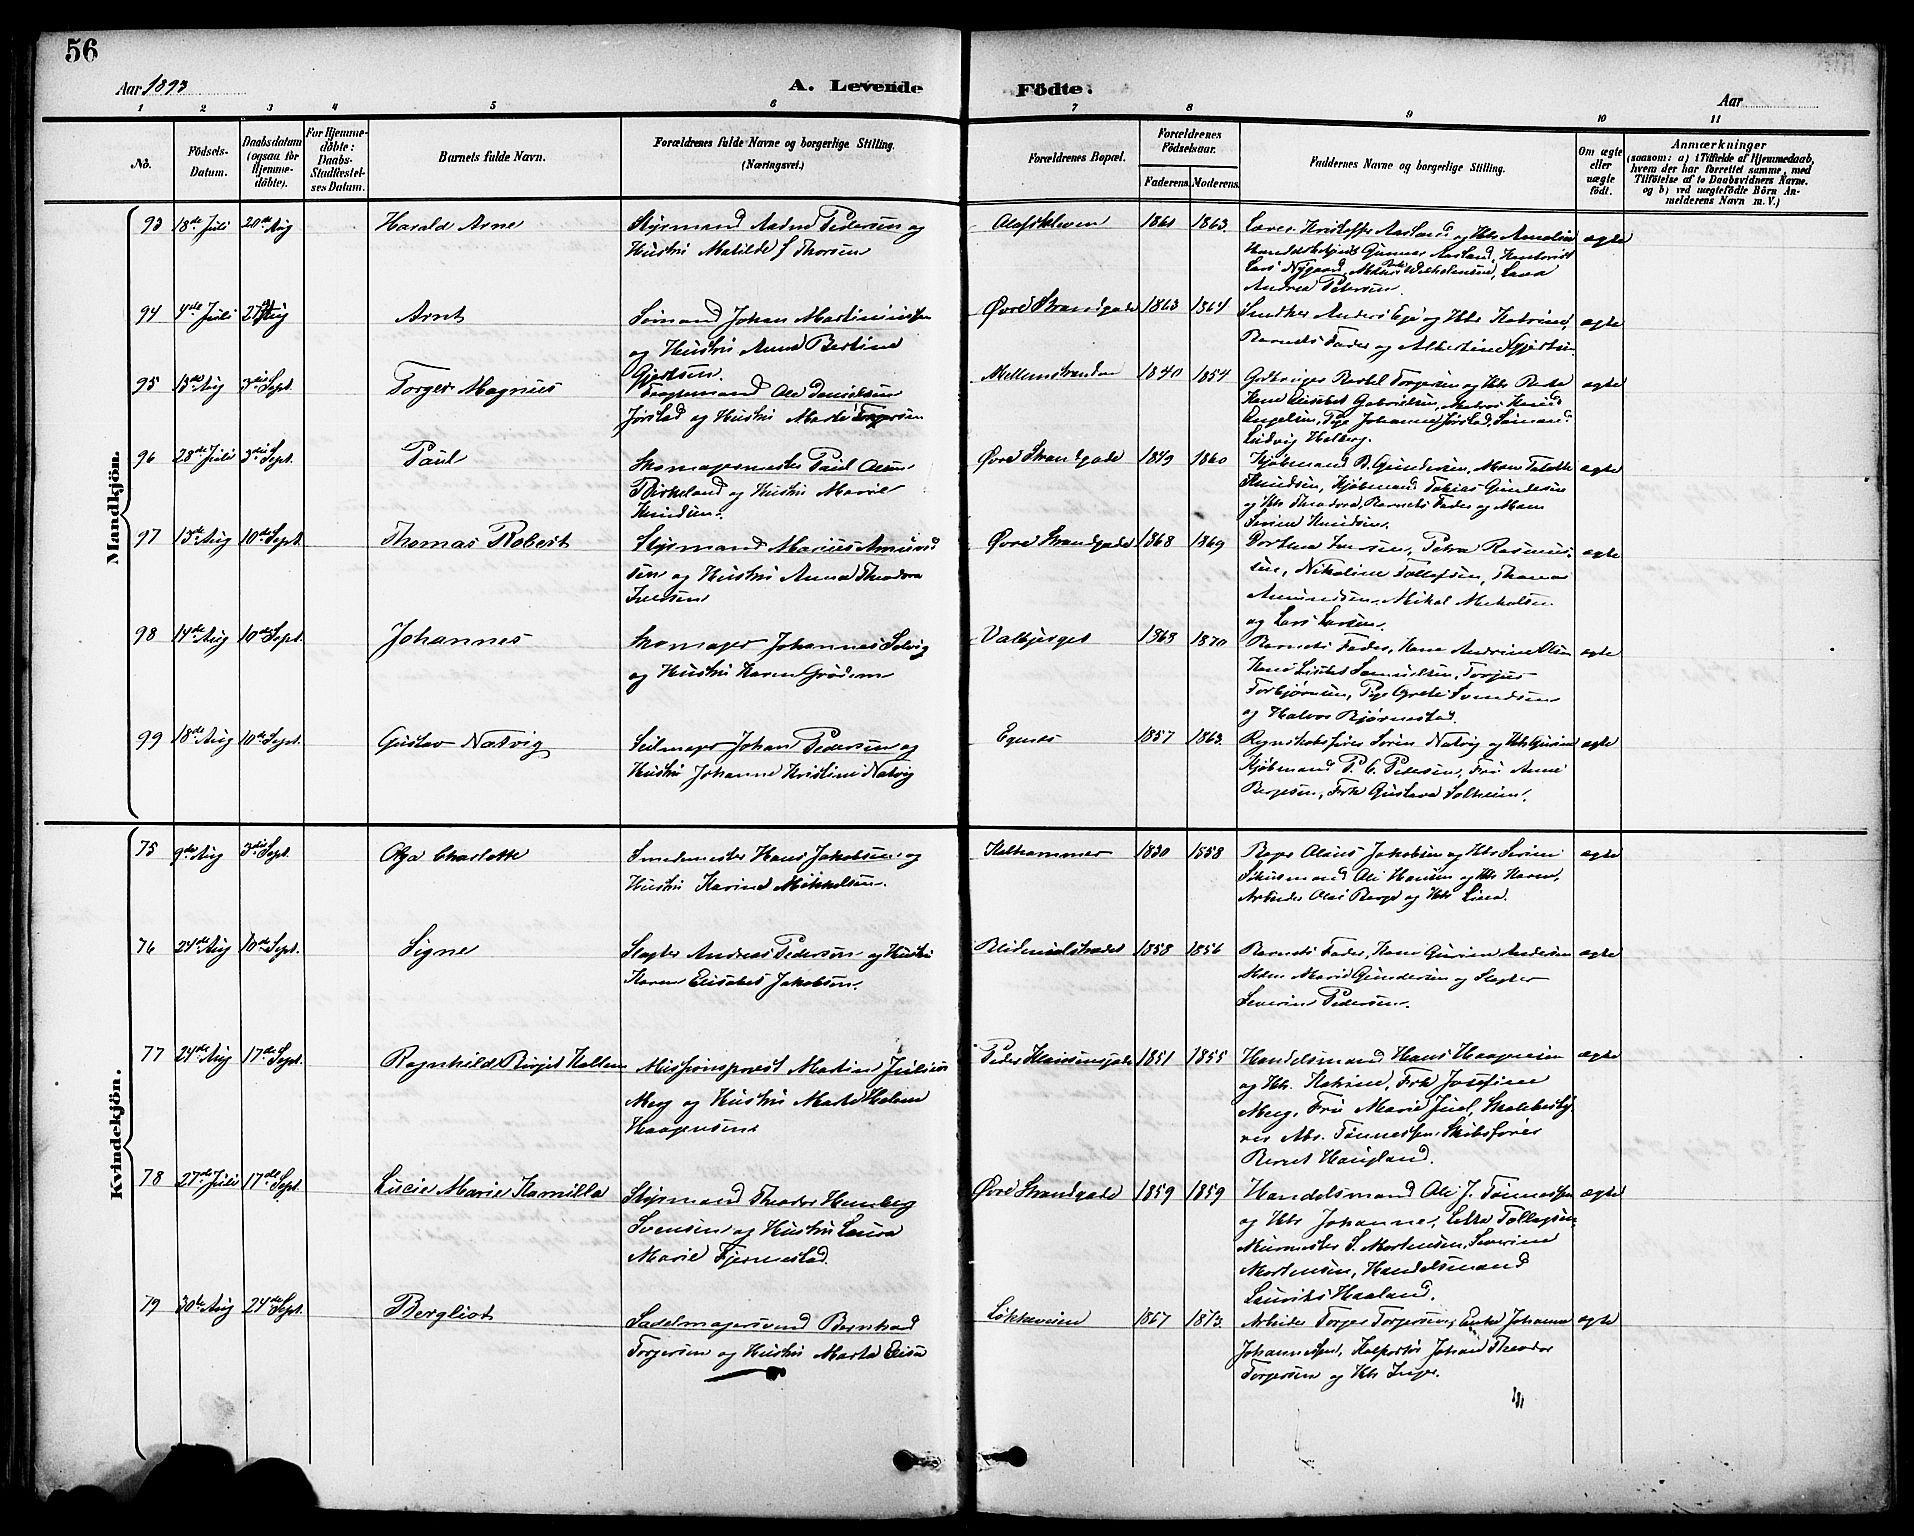 56
Aar 1893
A. Levende Födte.
Aar
1 2 3 4 5 6 7 8 9 10 11
No.
Födsels-Datum.
Daabsdatum (ogsaa for Hjemme-döbte).
For Hjemme-döbte: Daabs-Stadfæstel-ses Datum.
Barnets fulde Navn.
Forældrenes fulde Navne og borgerlige Stilling. (Næringsvei.)
Forældrenes Bopæl.
Forældrenes Födselsaar.
Faderens. Moderens.
Faddernes Navne og borgerlige Stilling.
Om ægte eller uægte födt.
Anmærkninger
(saasom: a) i Tilfælde af Hjemmedaab, hvem der har forrettet samme, med Tilföielse af to Daabsvidners Navne. og b) ved uægtefödte Börn An-melderens Navn m. V.)
Mandkjön.
93 18de Juli 20de Aug Harald Arne
Styrmand Aadne Pedersen og
Hustru Matilde f Thorsen
Olafskleven 1861 1863. ægte
Lars Nygaard,
Andrea Petersen
94 4de Juli 27de Aug Arnt
Sømand Johan Martinius
og Hustru Anna Bertine
Gjertsen.
Øvre Strandgade 1863 1864 Snedker Anders Ege og Hst Katrine, ægte
Barnets Fader og Albertine Gjertsen.
95 13de Aug 3die Sept. Torger Magnus
Fragtemand Ole Danielsen
Jørstad og Hustru Marte Torgersen
Mellemstraden 1840 1854 ægte
Kone Elisabet Gabrielsen,
Engelsen, Pige Johanne Jørstad, Sømand
Ludvig Helberg.
96 28de Juli 3die Sept. Paul
Skomagermester Paul Olsen
Birkeland og Hustru Marie
Knudsen.
Øvre Strandgade 1849 1860 Kjøbmand B. Gundersen, ægte
Knudsen, Kjøbmand Tobias Gundersen
og Hst Theodora, Barnets Fader og Mam
Serine Knudsen.
97 13de Aug 10de Sept. Thomas Robert
Styrmand Marius Amund
sen og Hustru Anna Theodora
Iversen
Øvre Strandgade 1868 1869 Dorthea Iversen, Petra Rasmus- ægte
sen, Nikoline Tollefsen, Thomas
Amundsen, Mikal Mikalsen
og Lars Larsen.
98 14de Aug 10de Sept. Johannes
Skomager Johannes Solvig
og Hustru Karen Grødem
Valbjerget 1868 1870 Barnets Fader, Kone Andrine Olsen ægte
Kone Lisabet Samuelsen, Torger
Torbjørnsen, Pige Grete Svendsen
og Halvor Bjørnestad.
99 18de Aug 10de Sept. Gustav Natvig
Seilmager Johan Pedersen og
Hustru Johanne Kristine Natvig
Egenes 1857 1863. Regnskabsfører Søren Natvig og Hst Gurine ægte
Kjøbmand P. C. Pedersen, Fru Anne
Bergesen, Frk Gustava Solheim.
Kvindekjön.
75 9de Aug 3die Sept. Olga Charlotte
Smedmester Hans Jakobsen og
Hustru Karine Mikkelsen.
Kalhammer 1850 1858 Bager Olaus Jakobsen og Hst Serine ægte
Ole Hansen og Hst Karen,
Arbeider Olai Berge og Hst Lina.
76 24de Aug 10de Sept. Signe
Slagter Andreas Pedersen og Hustru
Karen Elisabet Jakobsen.
Blidensolstrædet 1858 1856 Barnets Fader, Kone Gurine Andersen ægte
Mdm Marie Gundersen og Slagter
Severin Pedersen.
77 24de Aug 17de Sept. Ragnhild Birgit Kallem
Missionsprest Martin Julius
Meeg og Hustru Marte Helene
Haagensen
Peder Klausensgade 1851 1855 Handelsmand Hans Haagensen ægte
og Hst. Katrine, Frk Josefine
Meeg, Fru Marie Juel, Skolebesty-
rer Abr. Tønnessen, Skibsfører
Bernt Haugland.
78 27de Juli 17de Sept. Lucie Marie Kamilla
Styrmand Theodor Hemberg
Svensen og Hustru Laura
Marie Fjermestad.
Øvre Strandgade 1859 1859 Handelsmand Ole J. Tønnessen ægte
og Hst Johanne, Letta Tollagsen,
Murmester S. Mortensen, Severine
Mortensen, Handelsmand
Laurits Haaland.
79 30te Aug 24de Sept. Bergliot
Sadelmagersvend Bernhard
Torgersen og Hustru Marta Elisa
Løkkeveien 1867 1873. Arbeider Torger Torgersen, Enke Johanne ægte
Johannessen, Kolportør Johan Theodor
Torgersen og Hst Inger.